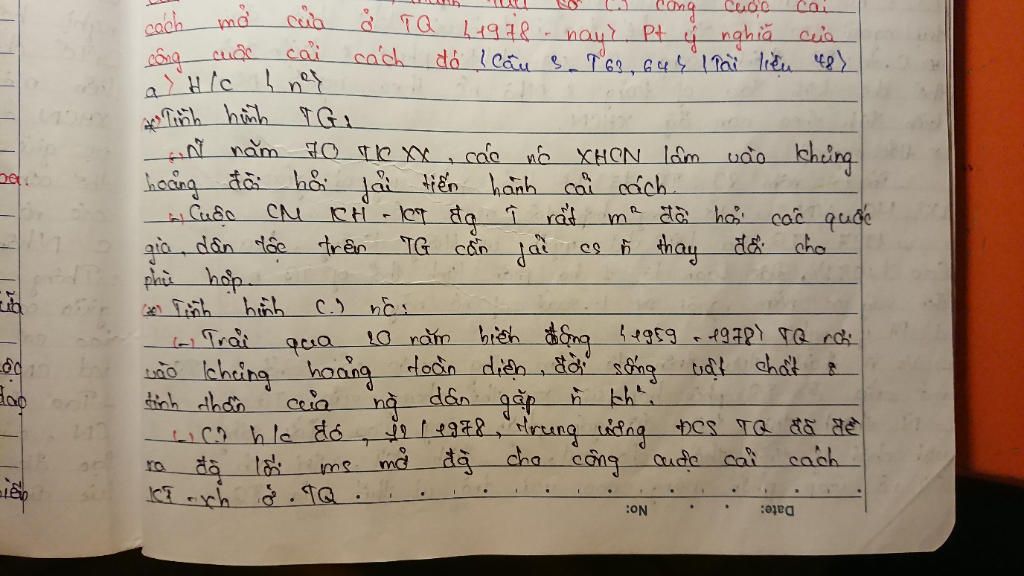 thành tựu cơ (.) công cuộc cải
cách mở cửa ở TQ (1978 - nay). Pt ý nghĩa của
công cuộc cải cách đó. (Câu 3 - T63, 64) (Tài liệu 48)
a) H/c (n²)
(*) Tình hình TG:
(-) N năm 70 TK XX, các nc XHCN lâm vào khủng
hoảng đòi hỏi fải tiến hành cải cách.
(-) Cuộc CM KH - KT đg rất m² đòi hỏi các quốc
gia, dân tộc trên TG cần fải cs n thay đổi cho
phù hợp.
(*) Tình hình (.) nc:
(-) Trải qua 20 năm biến động (1959 - 1978) TQ rơi
vào khủng hoảng toàn diện, đời sống vật chất &
tinh thần của ng dân gặp n kh².
(-) (.) h/c đó, 12/1978, trung ương ĐCS TQ đã đề
ra đg lối ms mở đg cho công cuộc cải cách
KT - xh ở TQ
Date: No: